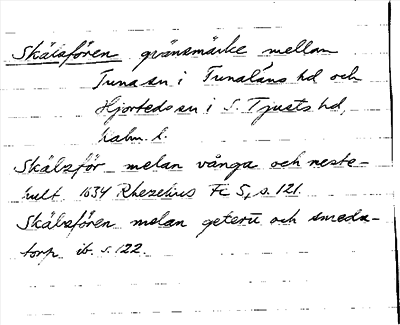 Skälsfören gränsmärke mellan
Tuna sn i Tunaläns hd och
Hjorteds sn i S. Tjusts hd,
kalm. l.
Skälsför melan vånga och neste-
hult 1634 Rhezelius Fc 5, s. 121.
Skälsfören melan geterū och smeds-
torp ib. s. 122.